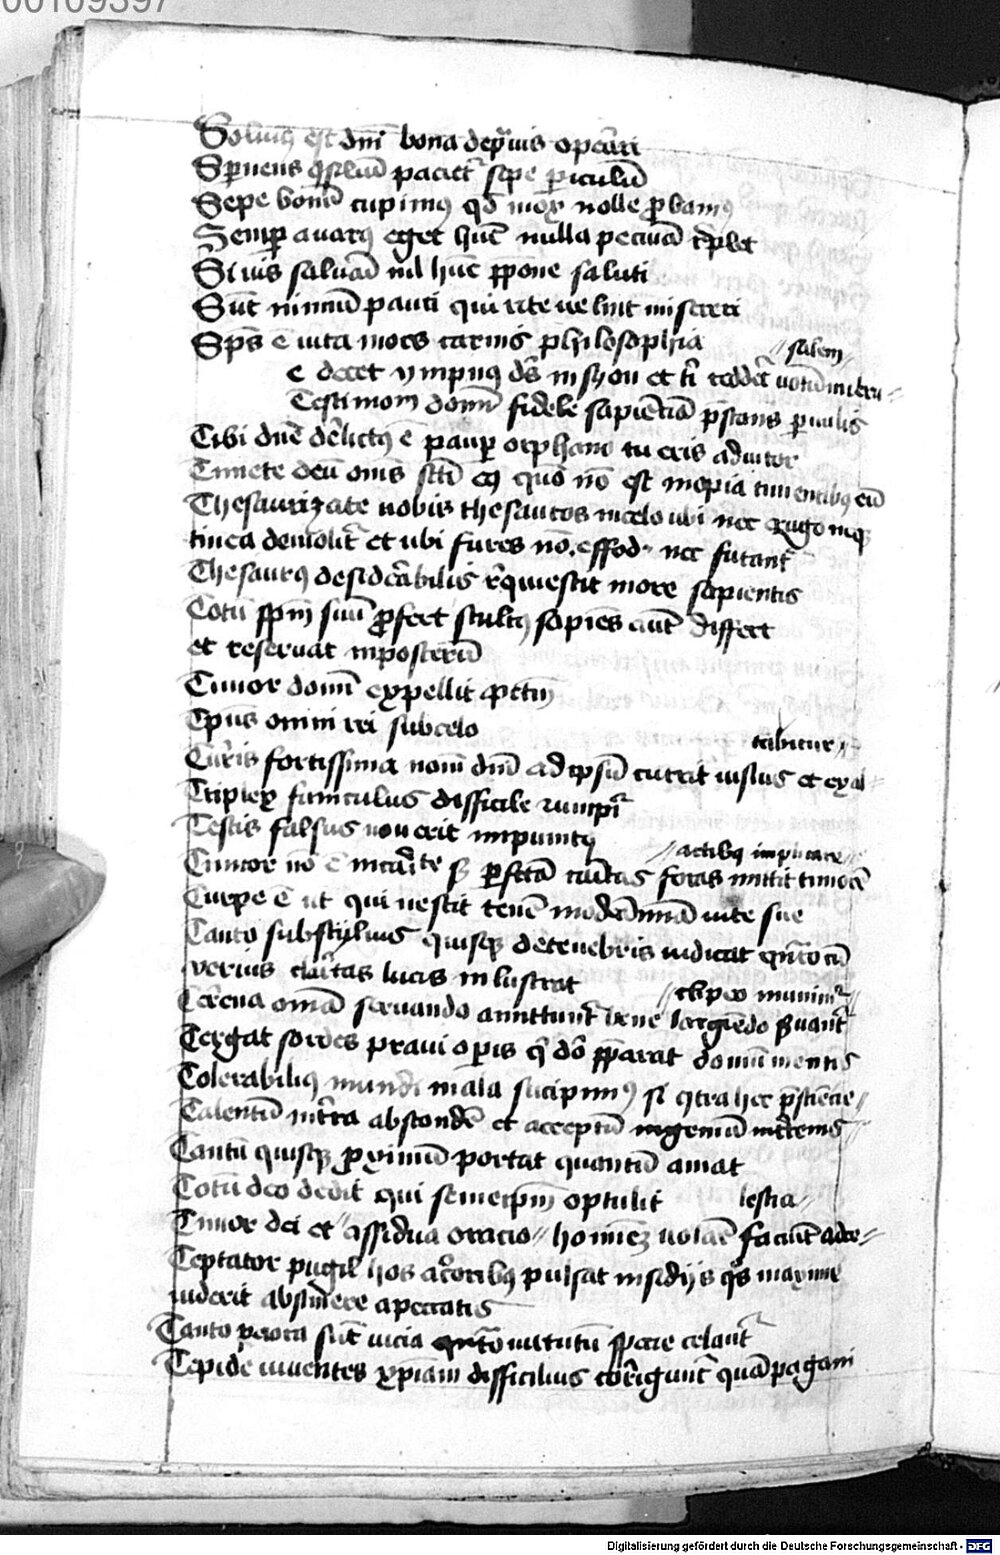 00109397
Solius est dni bona de puis opari
Spernens  faciet sepe piculu
Sepe bonu cupimus qd mox nolle pbamus
Semp avarus eget hunc nulla pecunia replet
Si vis salvari nil huic ppone saluti
Sunt nimium pauci qui rite velint misereri
Spus e vita mors carnis philosophia
salem
e decet ympnus ds in syon et ti reddet votu in ieru
Testimoni domi fidele sapiencia pstans pvulis
Tibi dne derelictus e paup orphano tu eris adiutor
Timete deu oms scti eius quo no est inopia timentibus eu
Thesaurizate vobis thesauros in celo ubi nec erugo neq
tinea demolit et ubi fures no effod nec furant
Thesaurus desiderabilis requiescit in ore sapientis
Totu spm suu pfert stultus sapiens aut differt
et reservat in posteru
Timor domi expellit pctm
Tpus omni rei sub celo
tabitur
Turris fortissima nom dni ad ipsu currit iustus et exal
Triplex funiculus difficile rumpi
Testis falsus non erit impunitus
actibus implicare
Timor no e in caritate s pfcta caritas foras mittit timore
Turpe e ut qui nescit tene moderamina vite sue
Tanto subtilius quisq de tenebris iudicat quanto eu
verius claritas lucis inlustrat
clipeo munimur
Terrena omia servando amittunt bene largiendo servant
Tergat sordes pravi opis q do pparat domu mentis
Tolerabilius mundi mala suscipimus si contra hec psciencie
Talentu in terra abscondere et acceptu ingeniu in terrenis
Tantu quisq pximu portat quantu amat
Totu deo dedit qui semetipm optulit
lestia
Timor dei et assidua oracio homiez volare faciut ad ce
Teptator pugil hos acrioribus pulsat insidiis qs maxime
viderit abstinere a peccatis
Tanto peiora sunt vicia quanto virtutu specie celant
Tepide viventes xpiani difficilius corrigunt qua pagani
Digitalisierung gefördert durch die Deutsche Forschungsgemeinschaft - DFG